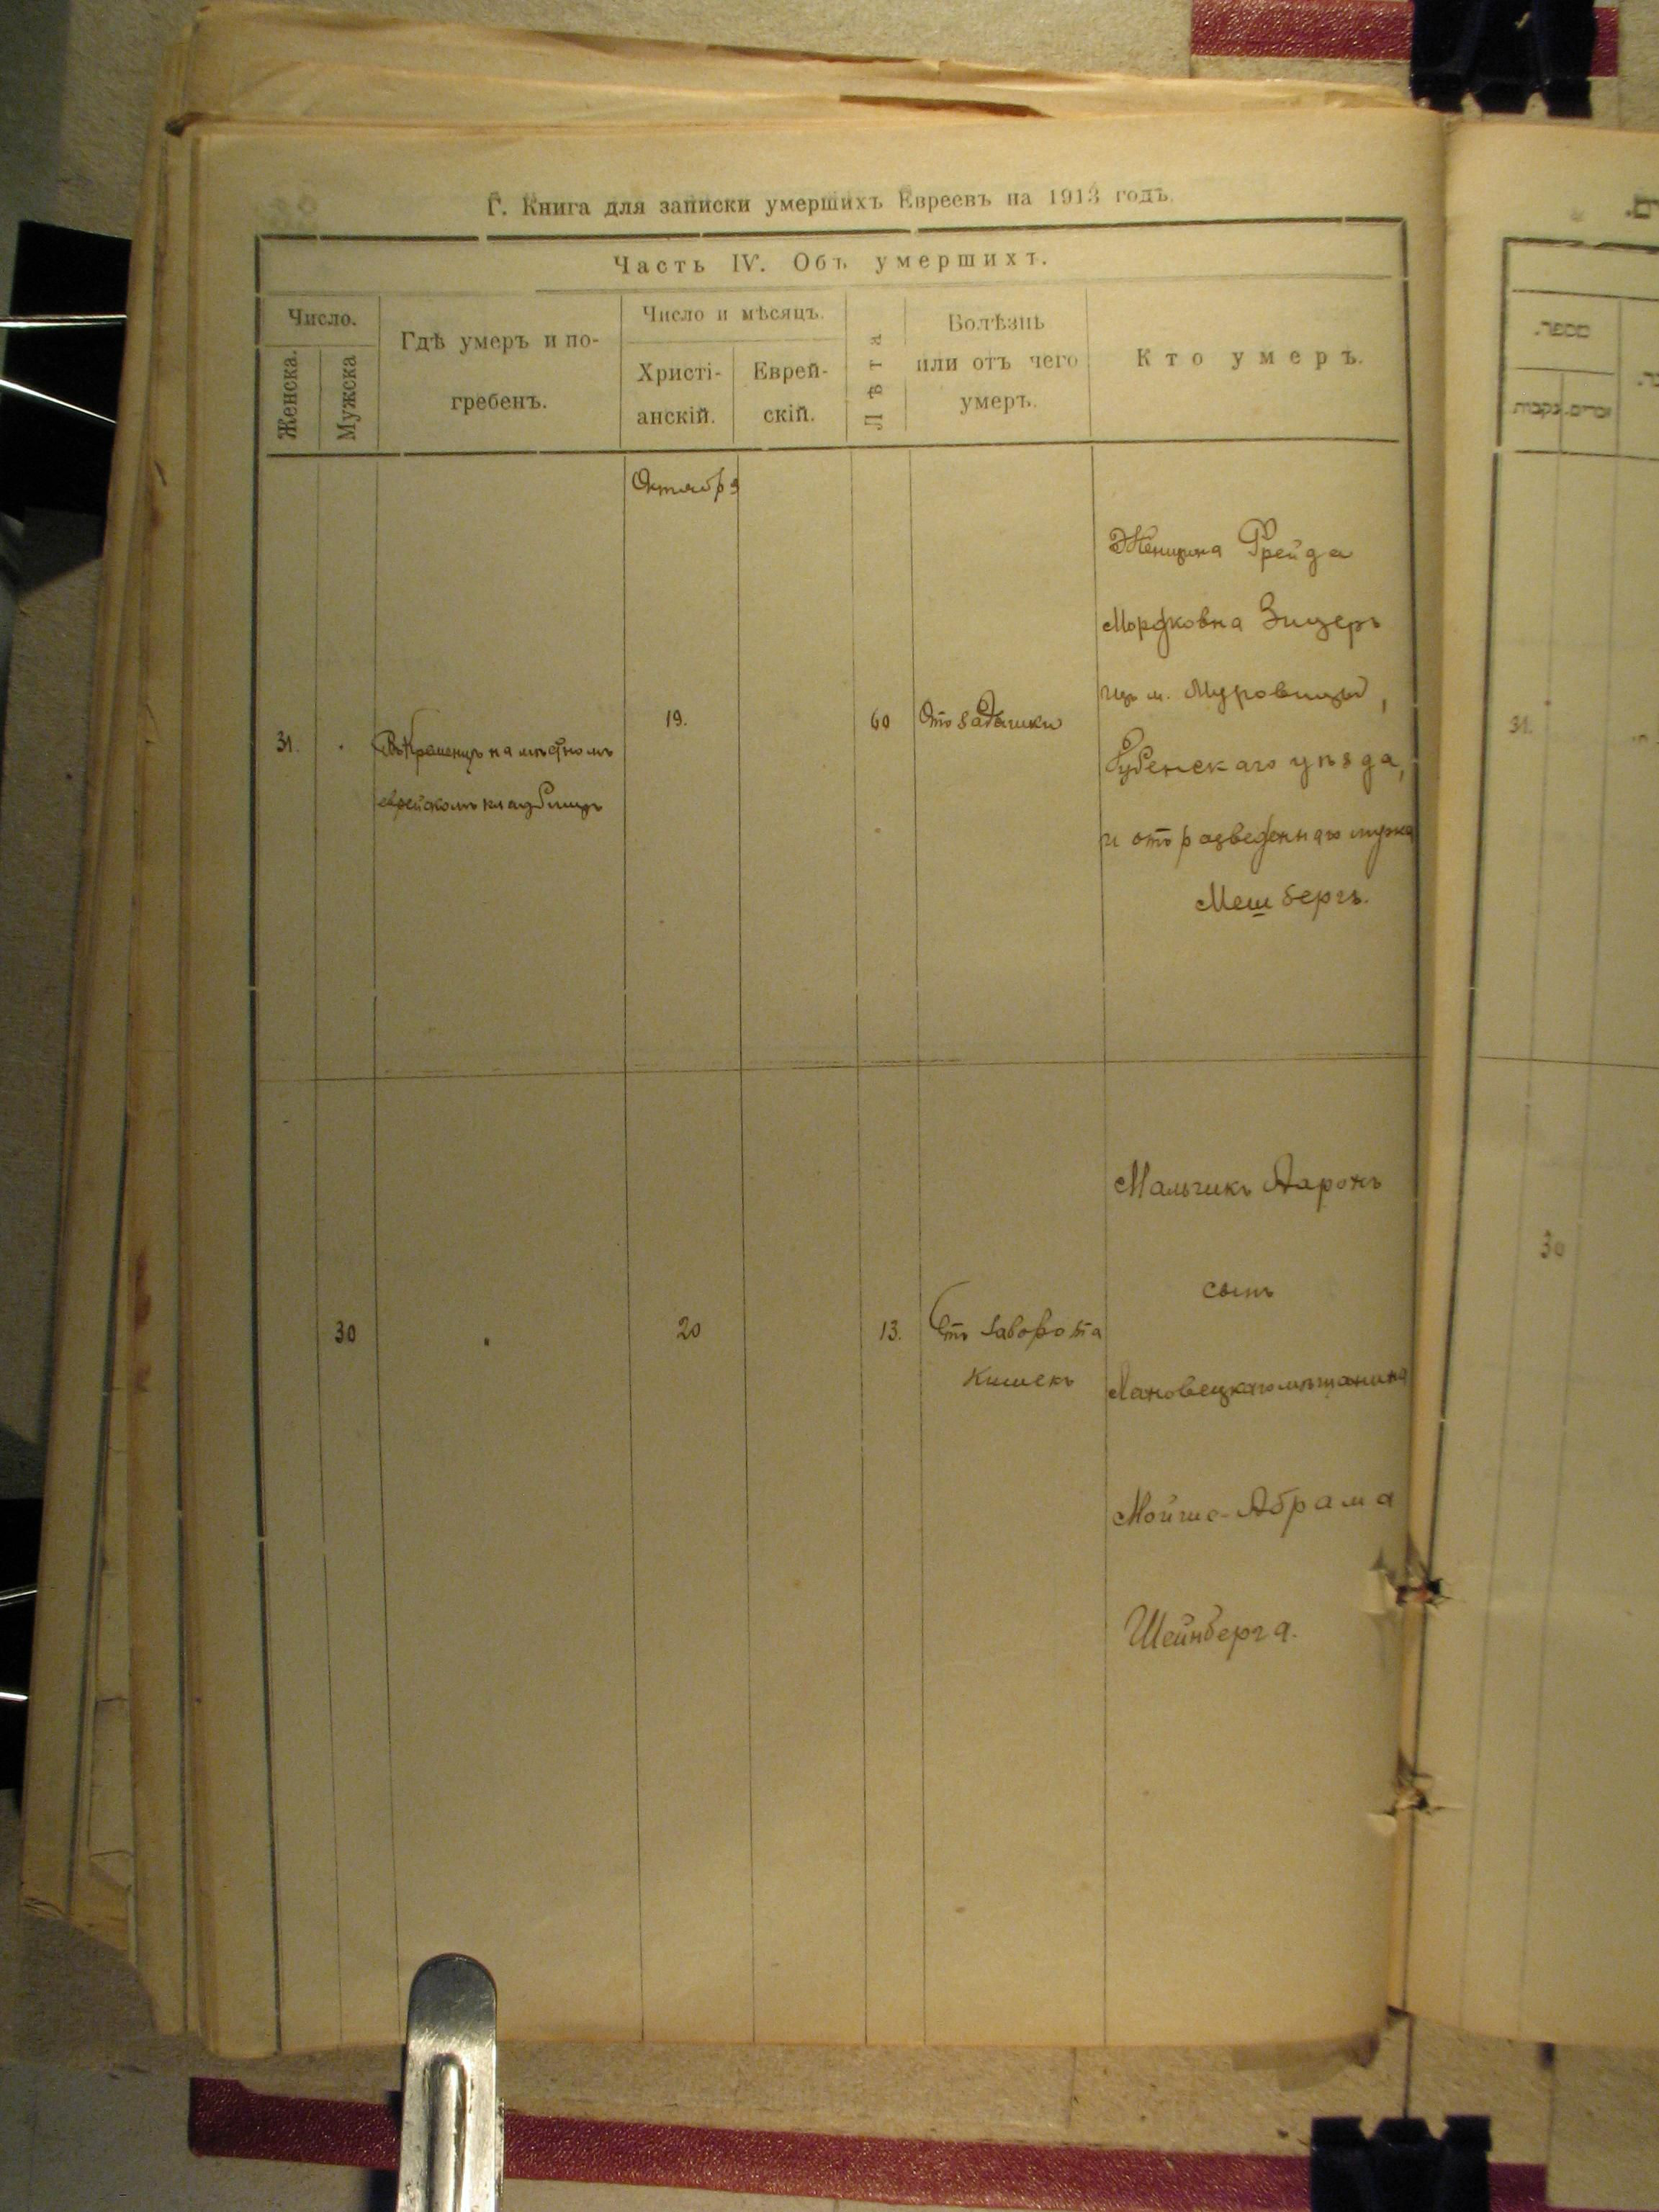 Г. Книга для записки умершихъ Евреевъ на 1913 годъ.
Часть IV. Объ умершихъ.
Число.
Женска.
Мужска
Гдѣ умеръ и по-
гребенъ.
Число и мѣсяцъ.
Христі-
анскій.
Еврей-
скій.
Лѣта
Болѣзнь
или отъ чего
умеръ.
Кто умеръ.
Октября
31.
Въ Кременцѣ на мѣстномъ
еврейскомъ кладбищѣ
19.
60
Отъ задышки
Женщина Фрейда
Мордковна Зицеръ
изъ м. Муровицы,
Дубенскаго уѣзда,
и отъ разведеннаго мужа
Мешбергъ.
30
"
20
13.
Отъ заворота
кишекъ
Мальчикъ Ааронъ
сынъ
Лановецкаго мѣщанина
Мойше-Абрама
Шейнберга.
מספר.
זכרים.
נקבות
31.
30